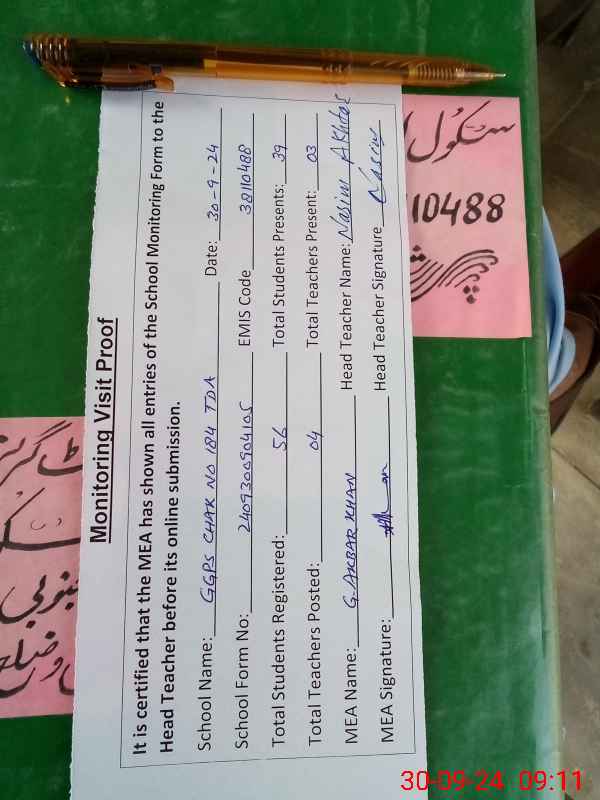 Monitoring Visit Proof
It is certified that the MEA has shown all entries of the School Monitoring Form to the
Head Teacher before its online submission.
School Name: GGPS CHAK NO 184 TDA Date: 30-9-24
School Form No: 2409300904105 EMIS Code 38110488
Total Students Registered: 56 Total Students Presents: 39
Total Teachers Posted: 04 Total Teachers Present: 03
MEA Name: G. AKBAR KHAN Head Teacher Name: Nasim Akhtar
MEA Signature: Head Teacher Signature Nasim
سکول
110488
30-09-24 09:11